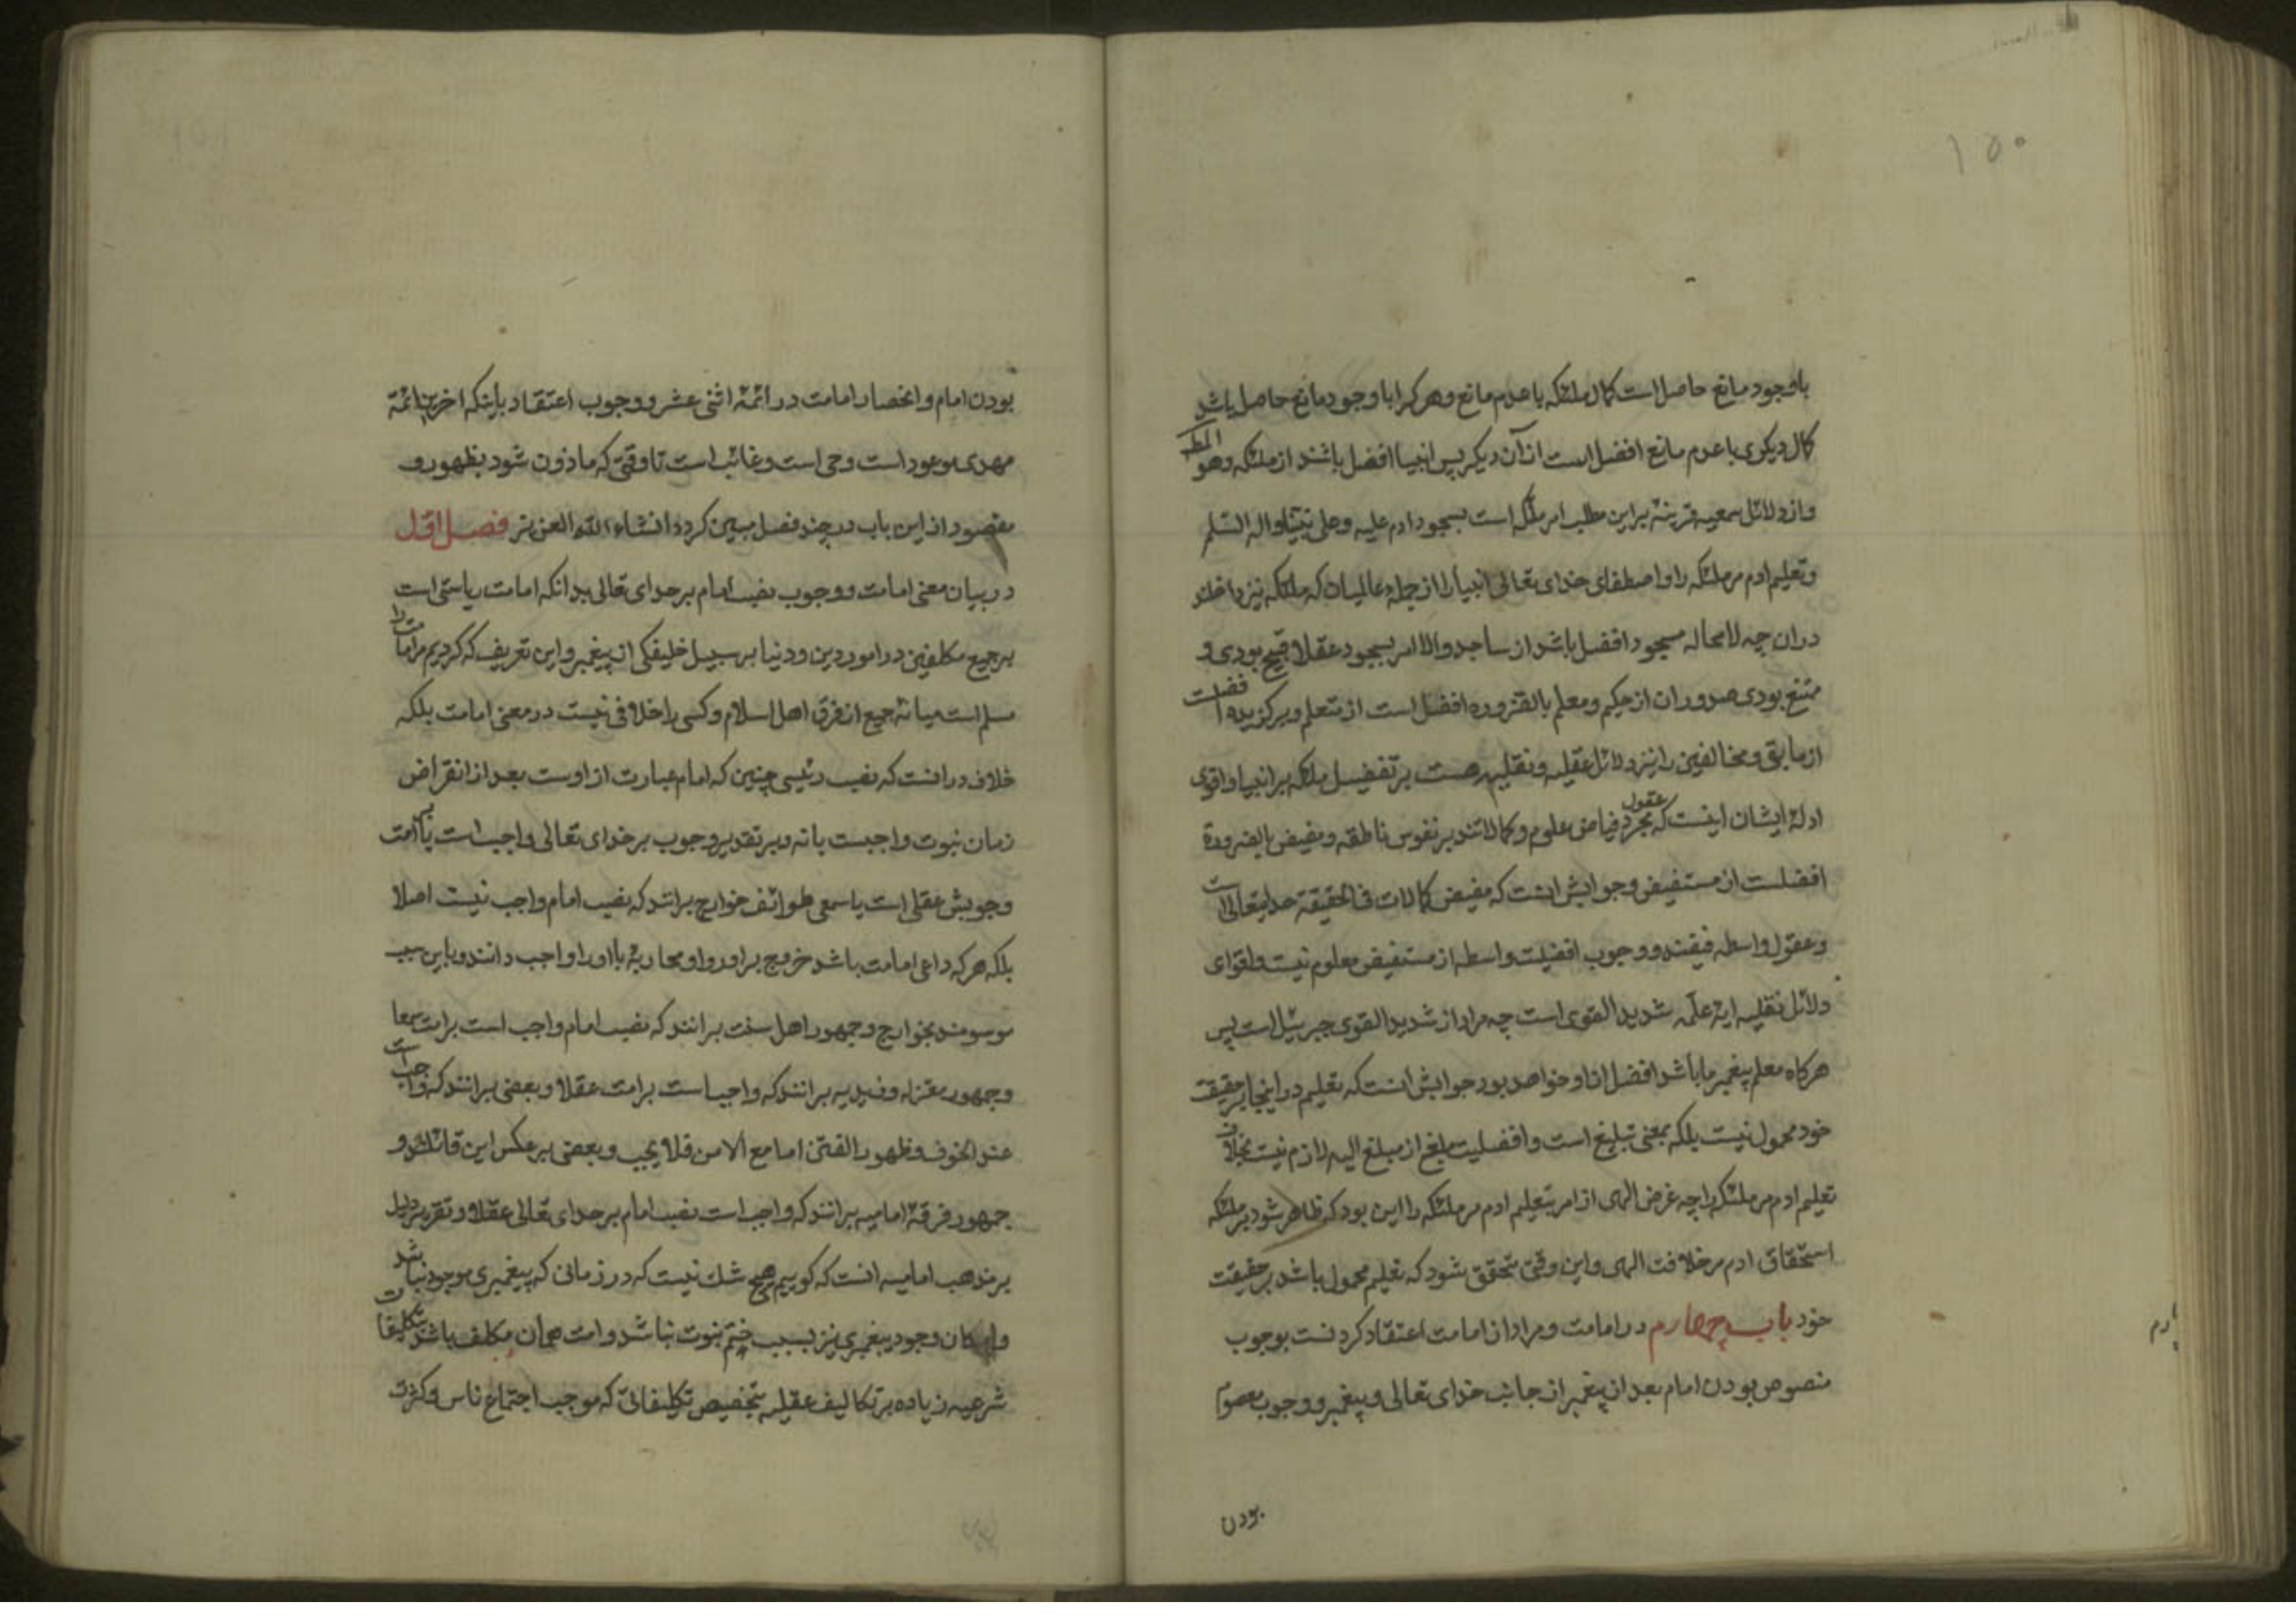 ۱۵۰
باوجود مانع حاصل است کمال ملئکه باعدم مانع وهر کرا باوجود مانع حاصل باشد
کمال دیکری باعدم مانع افضل است از آن دیکر پس انبیا افضل باشند از ملئکه وهو المط
واز دلائل سمعیه قرینهٔ براین مطلب امر ملئکه است بسجود ادم علیه وعلی نبینا واله السّلم
وتعلیم ادم مر ملئکه را واصطفای خدای تعالی انبیا را از جمله عالمیان که ملئکه نیز داخلند
دران چه لامحاله مسجود افضل باشد از ساجد والا امر بسجود عقلا قبیح بودی و
ممتنع بودی صدور ان از حکیم ومعلم بالضروره افضل است از متعلم وبرکزیده افضلست
از مابقی ومخالفین را نیز دلائل عقلیه ونقلیه هست بر تفضیل ملئکه بر انبیا واقوی
ادلهٔ ایشان اینست که عقول مجرّد فیاض علوم وکمالاتند بر نفوس ناطقه ومفیض بالضرورة
افضلست از مستفیض وجوابش انست که مفیض کمالات فی الحقیقة خدایتعالی است
وعقول واسطه فیضند ووجوب افضلیت واسطه از مستفیض معلوم نیست واقوای
دلائل نقلیه ایهٔ علّمه شدید القوی است چه مراد از شدید القوی جبرئیل است پس
هرکاه معلم پیغمبر ما باشد افضل از او خواهد بود جوابش انست که تعلیم در اینجا بر حقیقت
خود محمول نیست بلکه بمعنی تبلیغ است وافضلیت مبلغ از مبلغ الیه لازم نیست بخلاف
تعلیم ادم مر ملئکه را چه غرض الهی از امر بتعلیم ادم مر ملئکه را این بود که ظاهر شود بر ملئکه
استحقاق ادم مر خلافت الهی واین وقتی متحقق شود که تعلیم محمول باشد بر حقیقت
خود باب چهارم در امامت ومراد از امامت اعتقاد کردنست بوجوب
منصوص بودن امام بعد از پیغمبر از جانب خدای تعالی وپیغمبر ووجوب معصوم
بودن
۱۵۱
بودن امام وانحصار امامت در ائمهٔ اثنی عشر ووجوب اعتقاد باینکه اخرین ائمّة
مهدی موعود است وحی است وغائب است تا وقتی که ماذون شود بظهور و
مقصود از این باب در چند فصل مبین کردد انشاء الله العزیز فصل اوّل
در بیان معنی امامت ووجوب نصب امام بر خدای تعالی بدانکه امامت ریاستی است
بر جمیع مکلفین در امور دین ودنیا بر سبیل خلیفکی از پیغمبر واین تعریف که کردیم مر امامت را
مسلم است میانهٔ جمیع از فرق اهل اسلام وکسی را خلافی نیست در معنی امامت بلکه
خلاف در انست که نصب رئیسی چنین که امام عبارت از اوست بعد از انقراض
زمان نبوت واجبست یا نه وبر تقدیر وجوب بر خدای تعالی واجب است یا بر امت
وجوبش عقلی است یا سمعی طوائف خوارج برانند که نصب امام واجب نیست اصلا
بلکه هرکه داعی امامت باشد خروج بر اورا ومحاربهٔ با اورا واجب دانند وباین سبب
موسومند بخوارج وجمهور اهل سنت برانند که نصب امام واجب است بر امت سمعا
وجمهور معتزله وزیدیه برانند که واجب است بر امت عقلا وبعضی برانند که واجب است
عند الخوف وظهور الفتن اما مع الامن فلا یجب وبعضی بر عکس این قائلند و
جمهور فرقهٔ امامیه برانند که واجب است نصب امام بر خدای تعالی عقلا وتقریر دلیل
بر مذهب امامیه انست که کوییم هیچ شک نیست که در زمانی که پیغمبری موجود نباشد
وامکان وجود پیغمبری نیز بسبب ختم نبوت نباشد وامت همان مکلف باشند بتکلیفات
شرعیه زیاده بر تکالیف عقلیه بتخصیص تکلیفاتی که موجب اجتماع ناس وکثرت